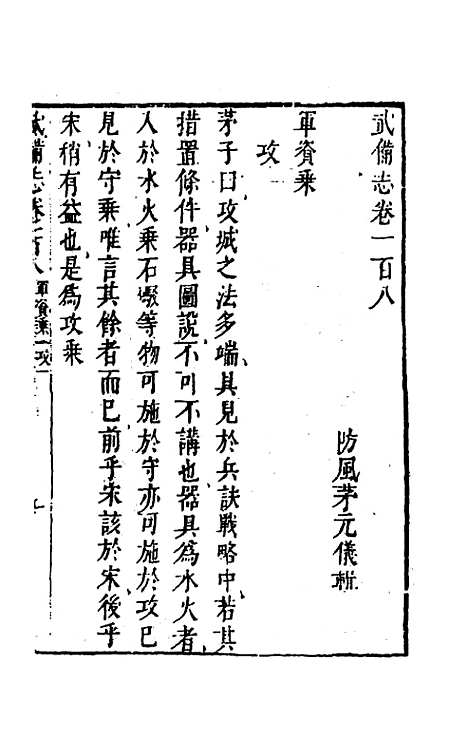 武備志卷一百八
防風茅元儀輯
軍資乘
攻一
茅子曰攻城之法多端其見於兵訣戰略中若其
措置條件器具圖說不可不講也器具為水火者
入於水火乘石礮等物可施於守亦可施於攻已
見於守乘唯言其餘者而已前乎宋該於宋後乎
宋稍有益也是為攻乘
武備志卷一百八 軍資乘 攻一